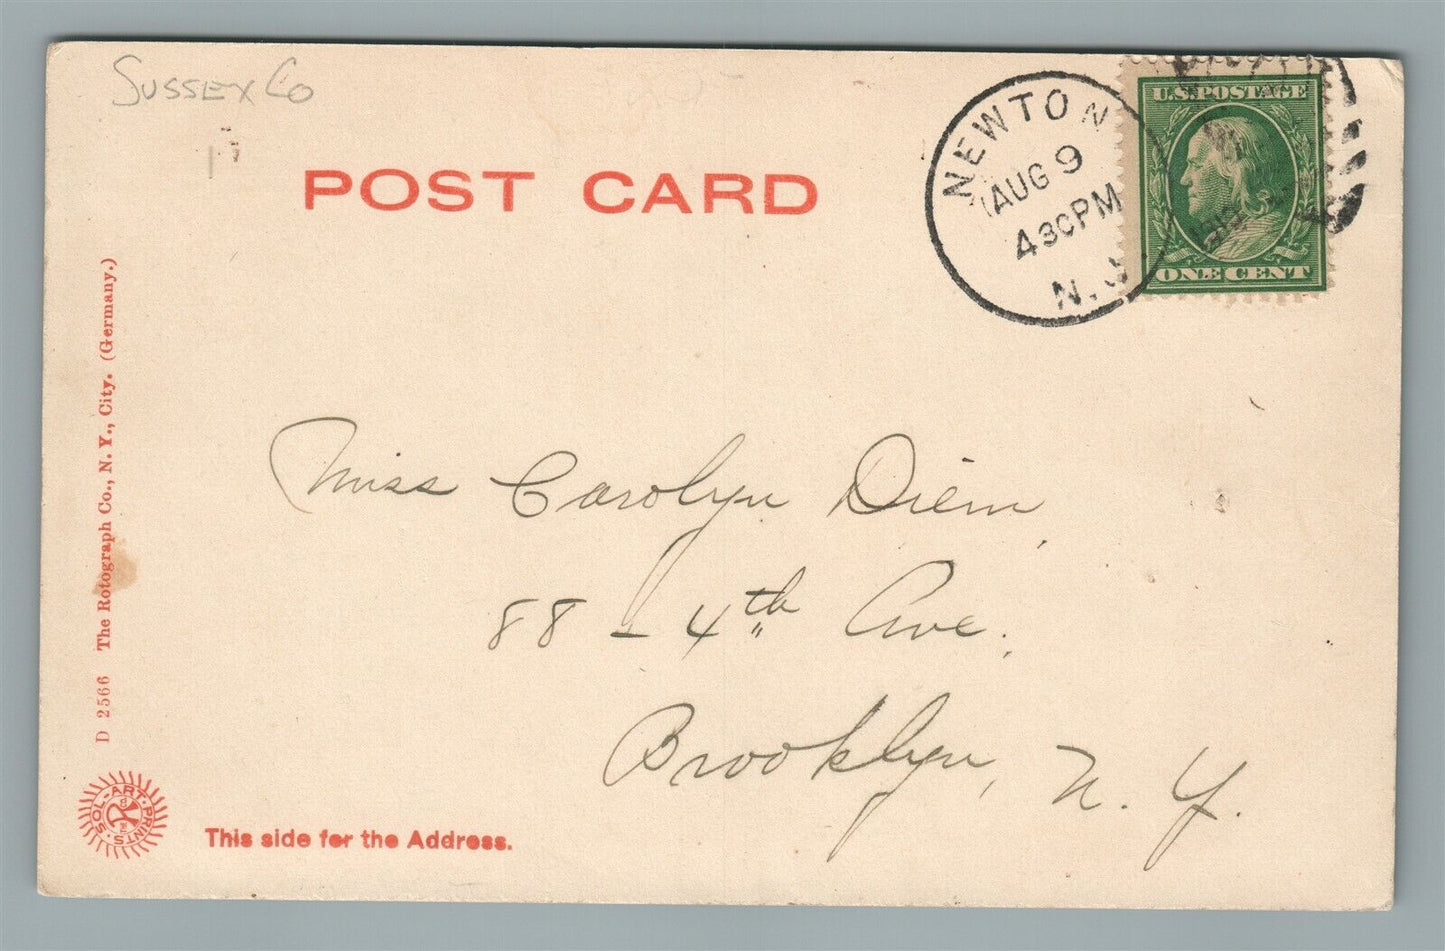 Sussex Co
POST CARD
NEWTON
AUG 9
430PM
N.J
U.S. POSTAGE
ONE CENT
Miss Carolyn Diem,
88 - 4th Ave.
Brooklyn, N.Y.
D 2566 The Rotograph Co., N. Y., City. (Germany.)
SOL-ART-PRINTS
This side for the Address.